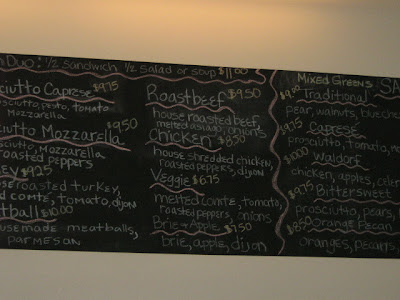 Duo: 1/2 sandwich, 1/2 salad or soup $11.00
sciutto Caprese $9.75
osciutto, pesto, tomato
mozzarella
ciutto Mozzarella $9.50
sciutto, mozzarella
roasted peppers
ey $9.25
use roasted turkey,
ed comte, tomato, dijon
tballs $10.00
usemade meatballs,
parmesan
Roastbeef $9.50
house roasted beef,
melted asiago, onions
Chicken $8.50
house shredded chicken,
roasted peppers, dijon
Veggie $6.75
melted comte, tomato,
roasted peppers, onions
Brie & Apple $7.50
brie, apple, dijon
Mixed Greens SA
$9.00 Traditional
pear, walnuts, blue che
$9.75 Caprese
prosciutto, tomato, mo
$10.00 Waldorf
chicken, apples, celer
$9.75 Bittersweet
prosciutto, pears,
Orange Pecan
oranges, pecans,